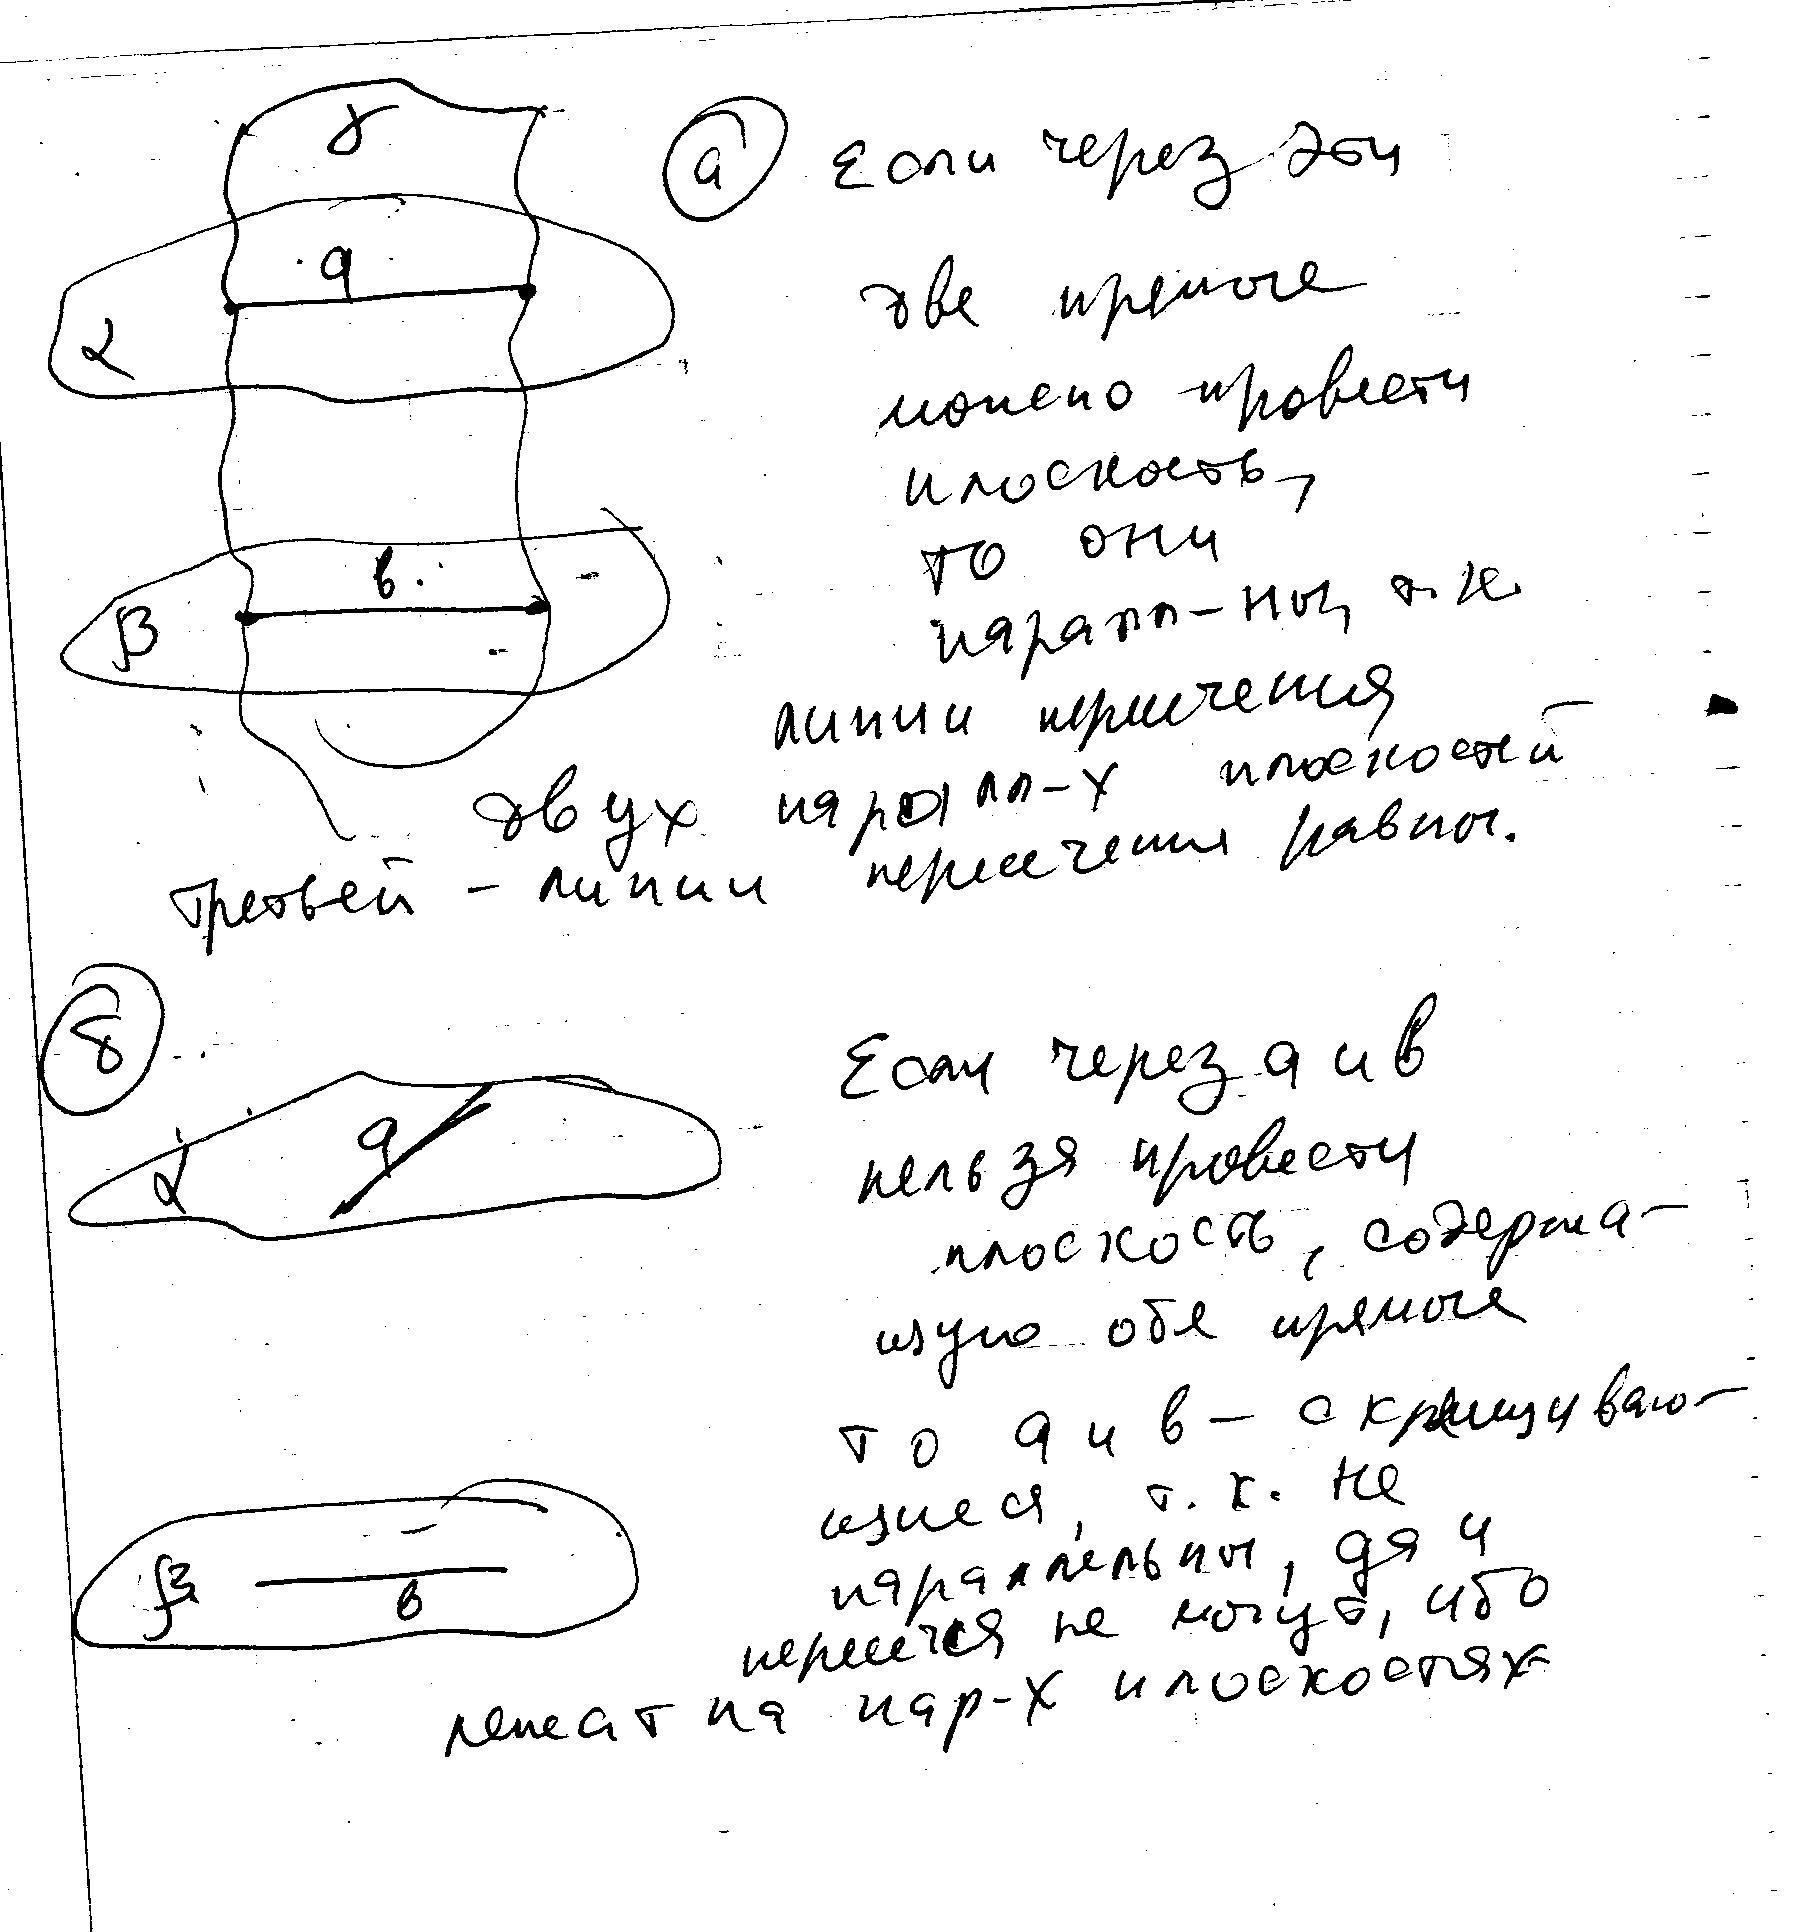 γ
а
α
а Если через эти
две прямые
можно провести
плоскость,
в
β
то они
паралл-ны, т.к.
линии пересечения
двух паралл-х плоскостей
третьей - линии пересечения равны.
б
Если через а и в
нельзя провести
α
а
плоскость, содержа-
щую обе прямые
то а и в - скрещиваю-
щиеся, т.к. не
β
в
параллельны, да и
пересечься не могут, ибо
лежат на пар-х плоскостях